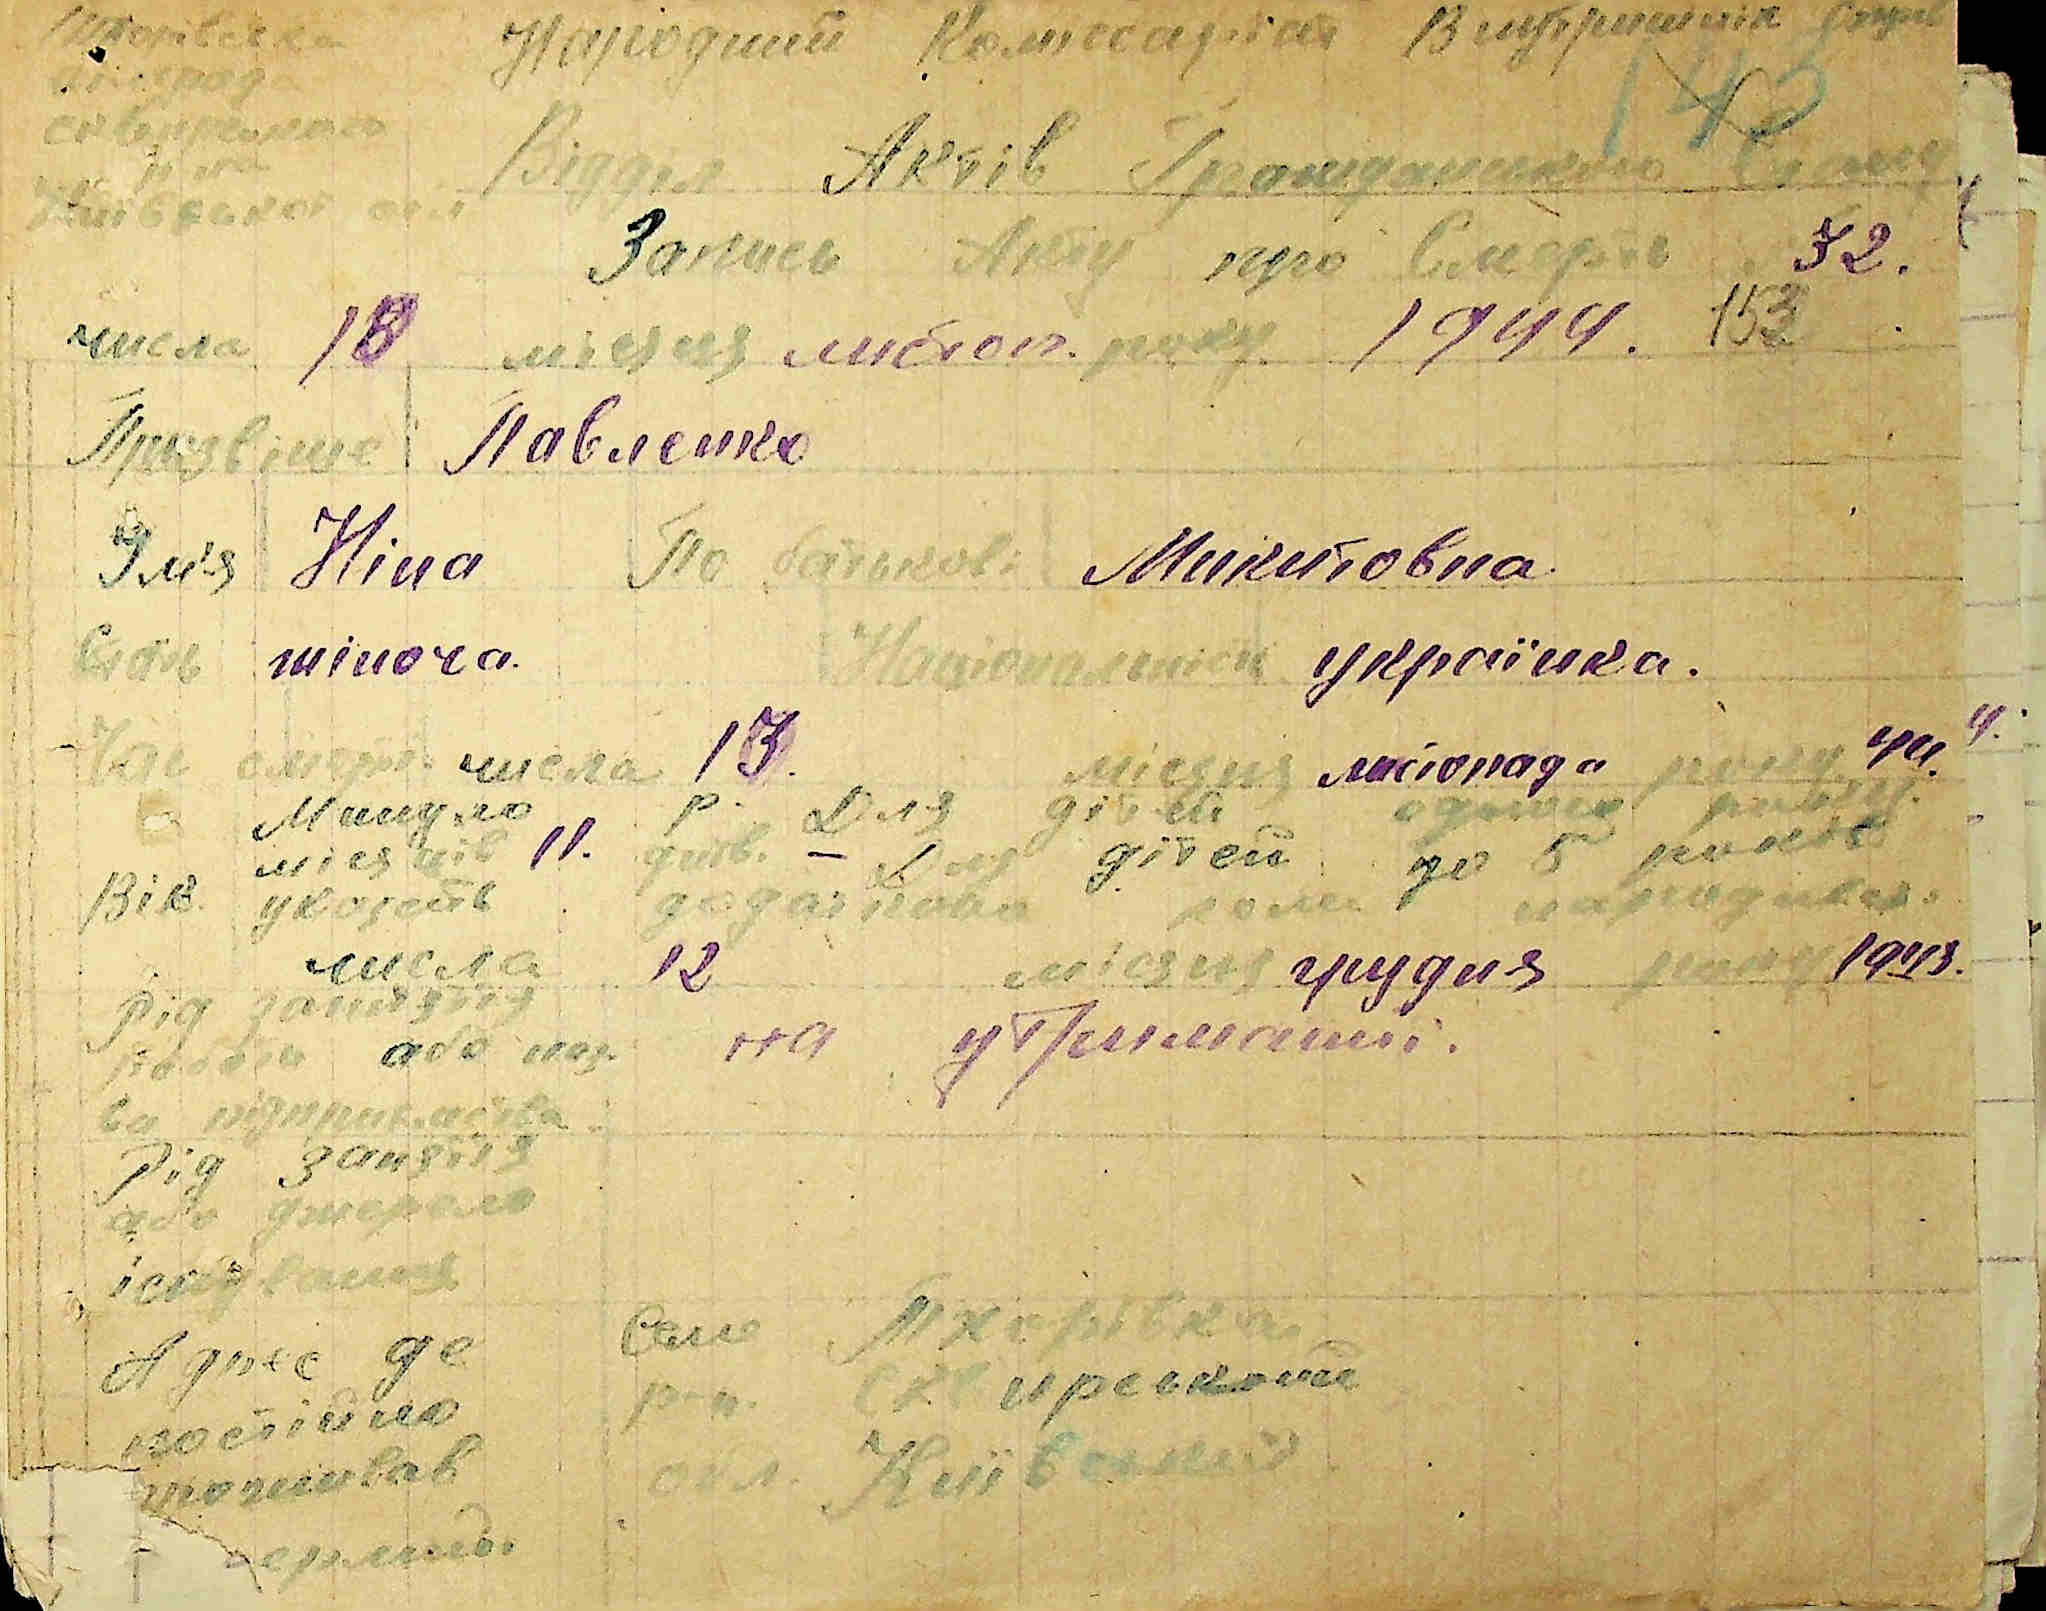 Тхорівська
сквирського
р-н
Київської обл
Народний Комісаріат Внутрішніх Справ
143
Відділ Актів Громадянського Стану
Запись Акту про Смерть 32.
числа 18 місяця листоп. року 1944. 153
Прізвіще Павленко
Ім'я Ніна По батькові Микитовна
Стать жіноча. Національність українка.
Час смерті числа 13. місяця листопада року 44.
Минуло р. Для дітей одного року
місяців 11. днів. – Для дітей до 5 років
Вік. указать додатково коли народився.
числа 12 місяця грудня року 1943.
Рід заняття
роботи або наз.
ва підприємства
на утриманні.
Рід заняття
або джерело
існування
Адрес де
постійно
проживав
померлий
Село Тхорівка
р-н. Сквирський
обл. Київський